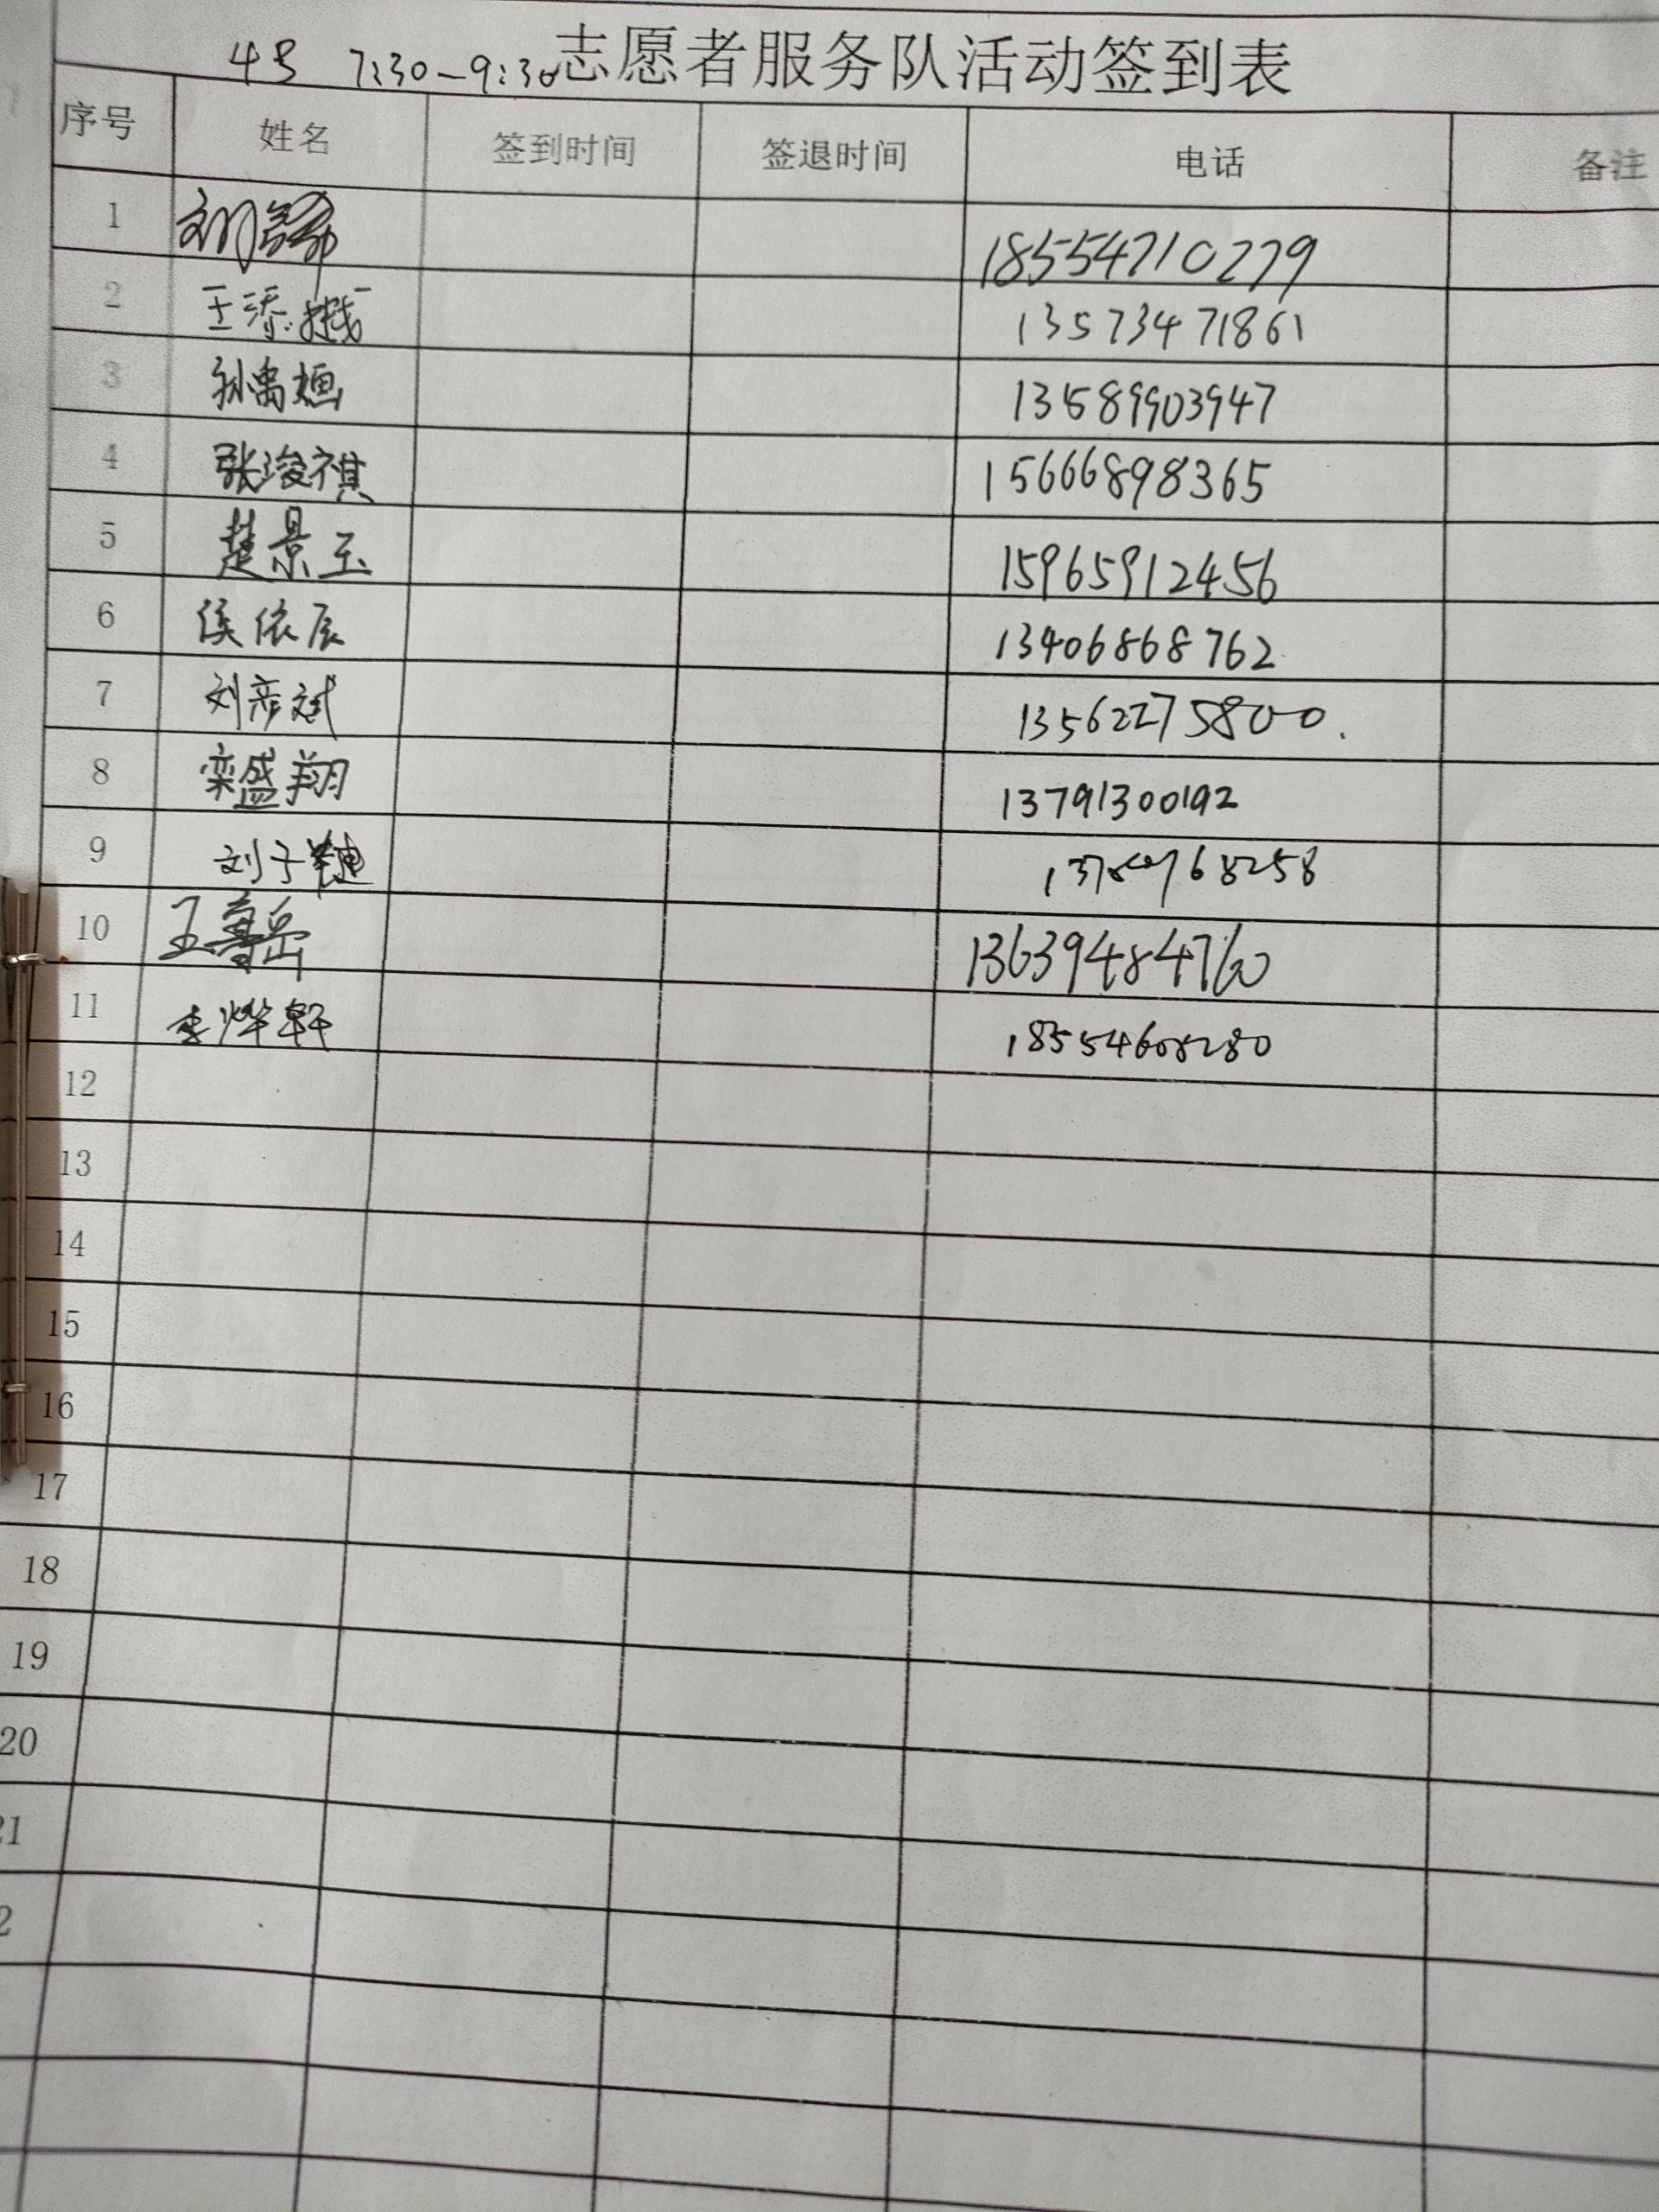 4号 7:30-9:30 志愿者服务队活动签到表
序号 姓名 签到时间 签退时间 电话 备注
1 刘 18554710279
2 王添 13573471861
3 孙禹 13589903947
4 张浚祺 15666898365
5 楚景玉 15965912456
6 侯依辰 13406868762
7 刘彦斌 13562275800.
8 栾盛翔 13791300192
9 刘子
10 王寿岳 13639484760
11 李烨轩 18554608280
12
13
14
15
16
17
18
19
20
21
2